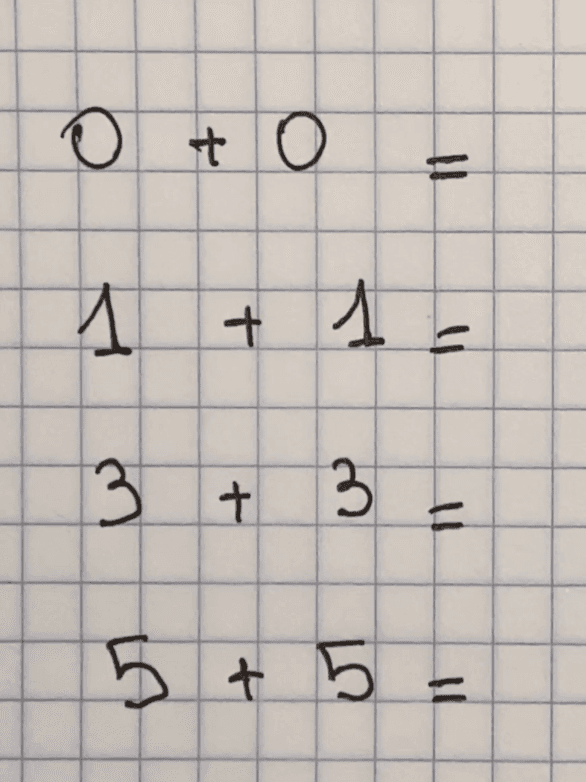 0 + 0 =
1 + 1 =
3 + 3 =
5 + 5 =